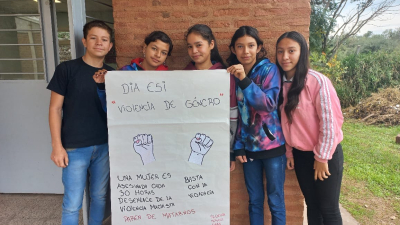 DIA ESI
"VIOLENCIA DE GÉNERO"
UNA MUJER ES
ASESINADA CADA
30 HORAS
DESENLACE DE LA
VIOLENCIA MACHISTA
BASTA
CON LA
VIOLENCIA
DEJEN DE MATARNOS